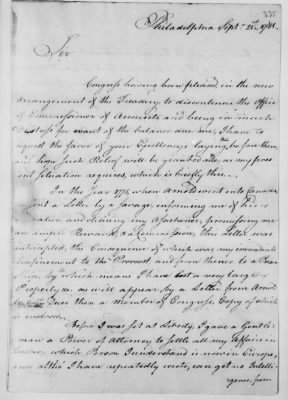 235
Philadelphia Sept. 21st 1781
Sir
Congress having been pleased, in the new
arrangement of the Treasury, to discontinue the Office
of Commissioner of Accounts and being in
distress for want of the balance due me, I have to
request the favor of your Excellency laying before them,
and hope such Relief will be granted me, as my pres
ent situation requires, which is briefly this
In the Year 1775, when Arnold went into Canada
sent a Letter by a Savage, informing me of his
and desiring my Assistance, promising me
an ample Reward, & a Commission, this Letter was
intercepted, the Consequence of which was my immediate
Confinement to the Provost and from thence to a Pris
on Ship, by which means I have lost a very large
Property, as will appear, by a Letter from
then a member of Congress, Copy of which
is enclosed.
Before I was set at Liberty, I gave a Gentle
man a Power of Attorney to settle all my Affairs in
Quebec, which Person I understand is now in Europe,
and altho' I have repeatedly wrote, can get no Intelli
gence, from